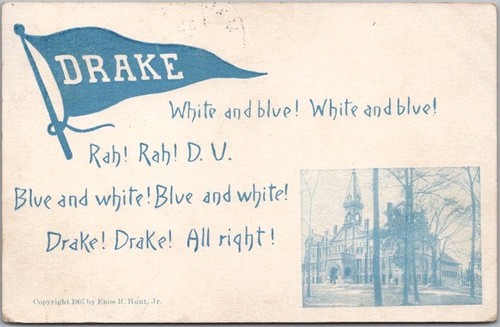 DRAKE
White and blue! White and blue!
Rah! Rah! D. U.
Blue and white! Blue and white!
Drake! Drake! All right!
Copyright 1907 by Enos B. Hunt, Jr.